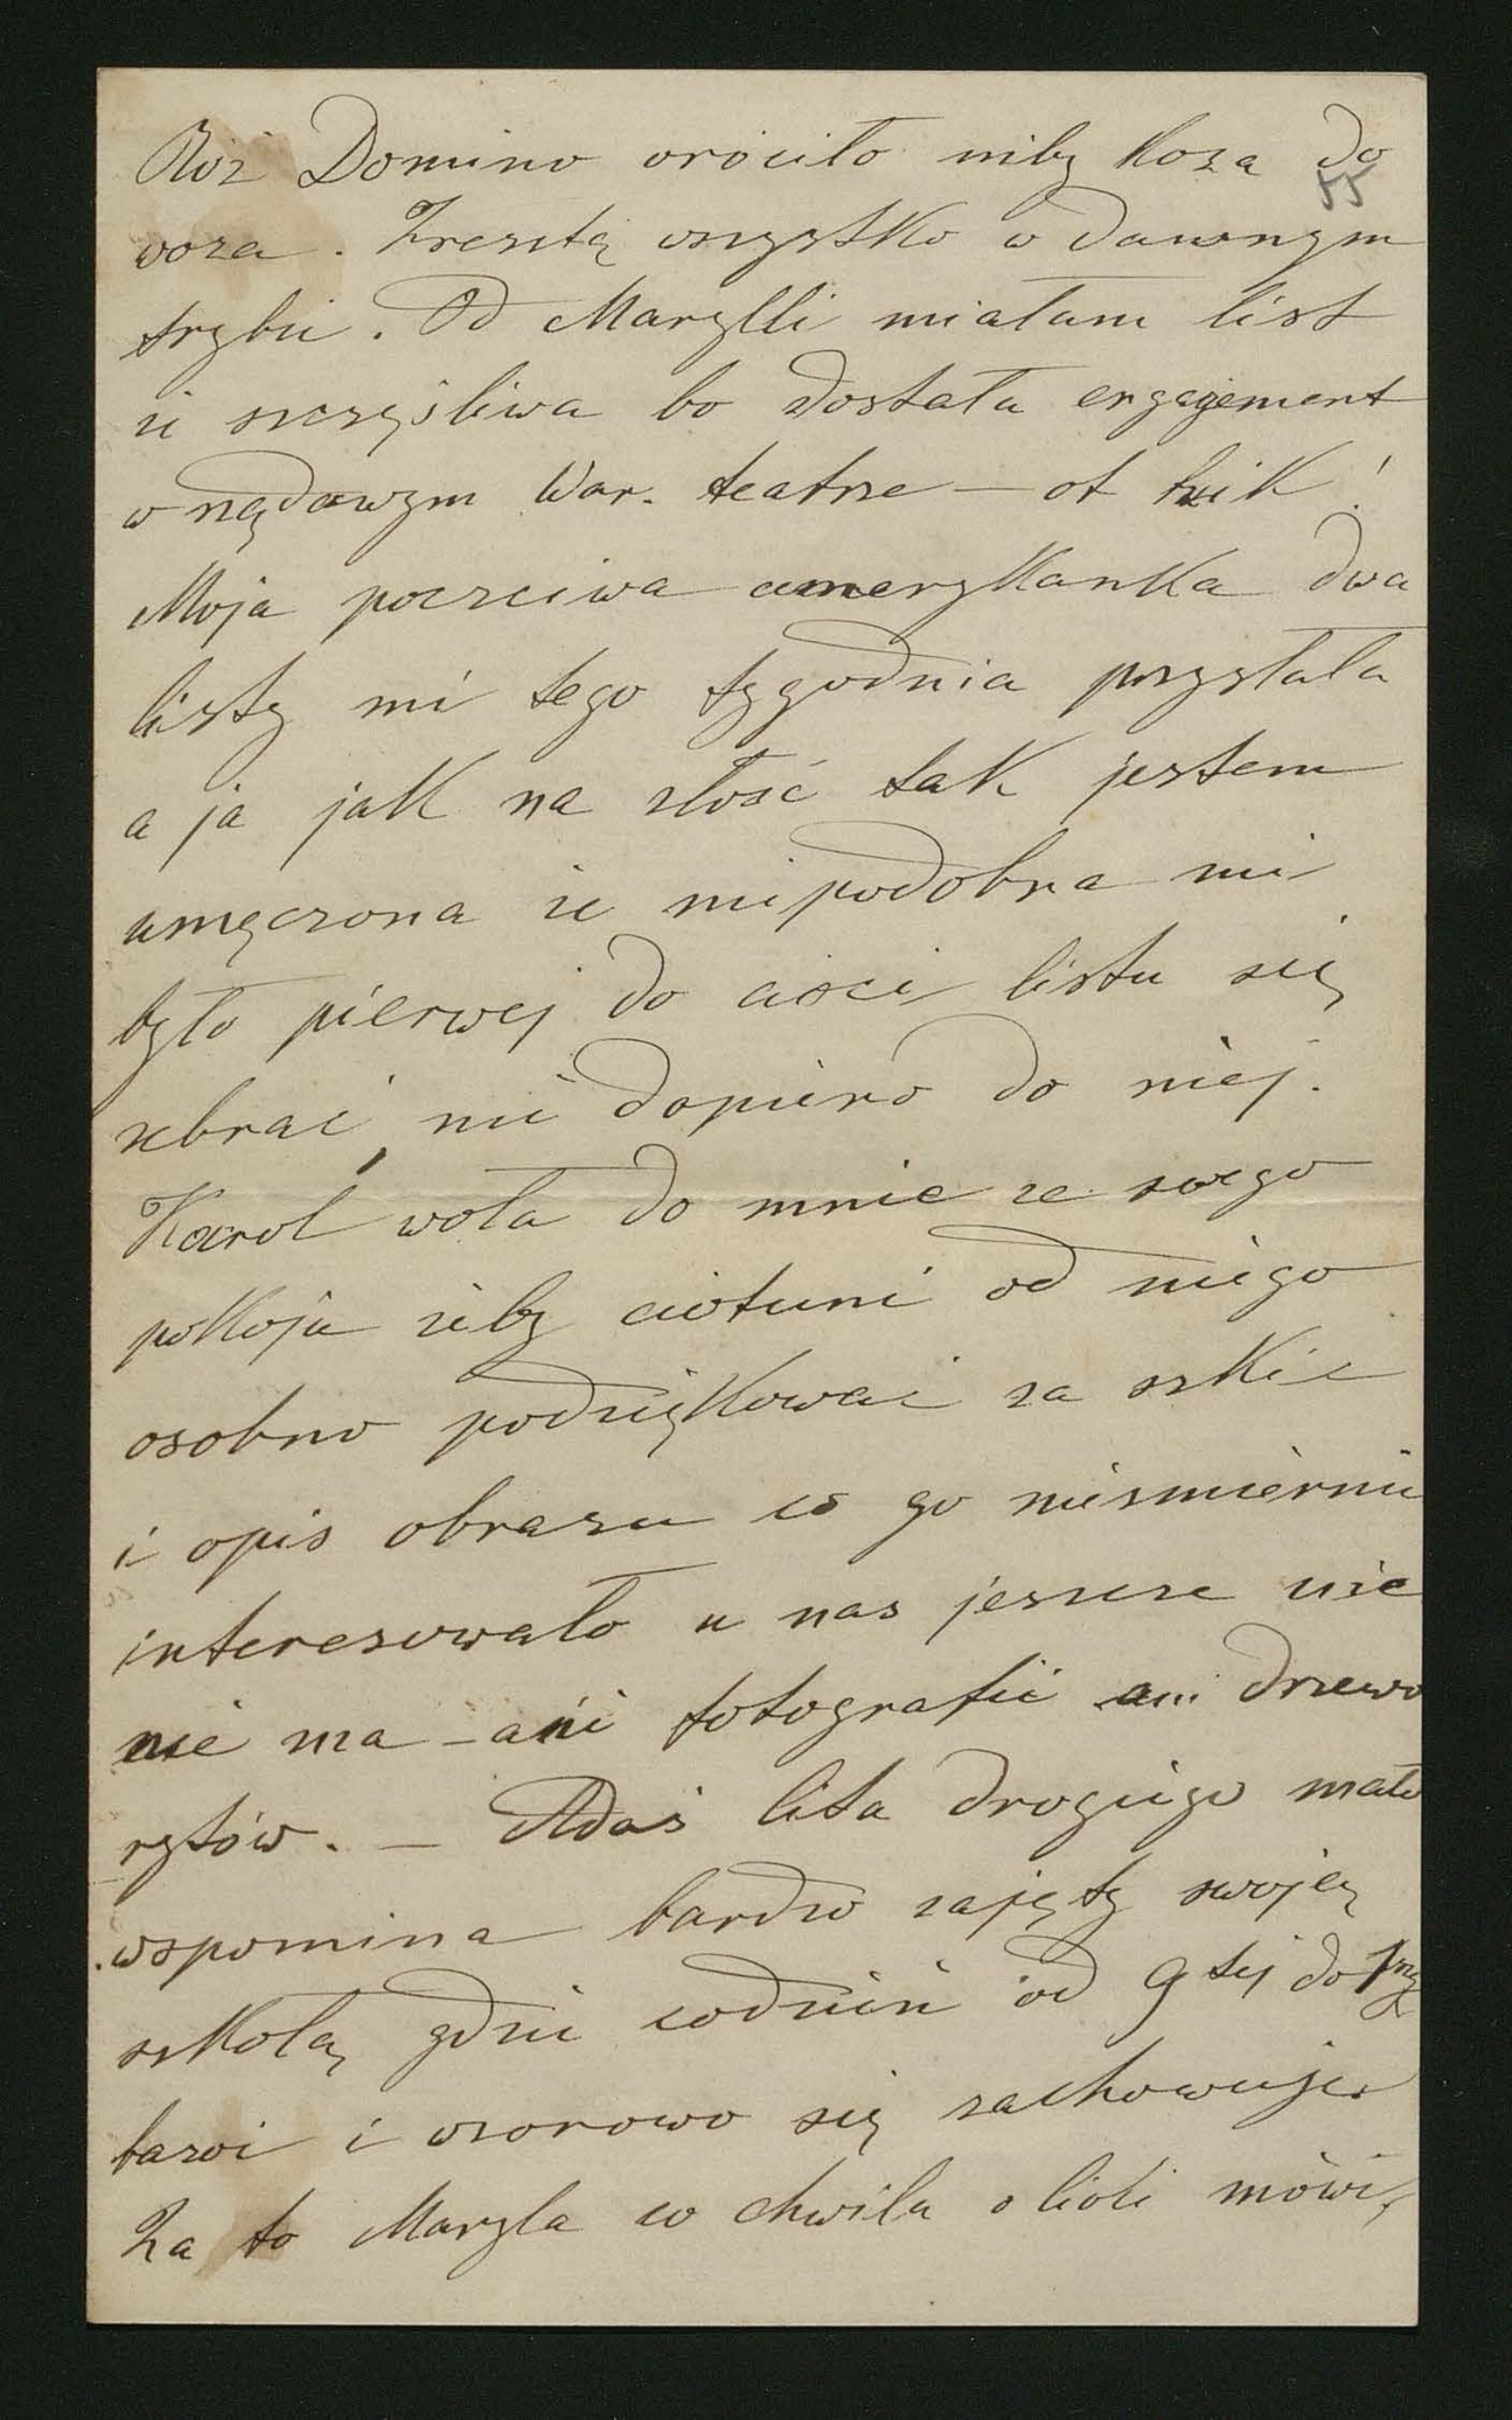 Róż Domino wróciło niby koza do
55
woza. Zresztą wszystko w dawnym
trybie. Od Marylli miałam list
że szczęśliwa bo dostała engagement
w rządowym War. teatrze — ot bzik!
Moja poczciwa amerykanka dwa
listy mi tego tygodnia przysłała
a ja jak na złość tak jestem
umęczona że niepodobna mi
było pierwej do cioci listu się
zebrać, nie dopiero do niej.
Karol woła do mnie ze swego
pokoju żeby ciotuni od niego
osobno podziękować za szkic
i opis obrazu co go niezmiernie
interesowało u nas jeszcze nic
nie ma – ani fotografii ani drzewo
rytów. — Adaś lata drogiego mało
wspomina bardzo zajęty swoją
szkołą, gdzie codzień od 9tej do 1szej
bawi i wzorowo się zachowuje.
Za to Maryla co chwila o Lioli mówi,